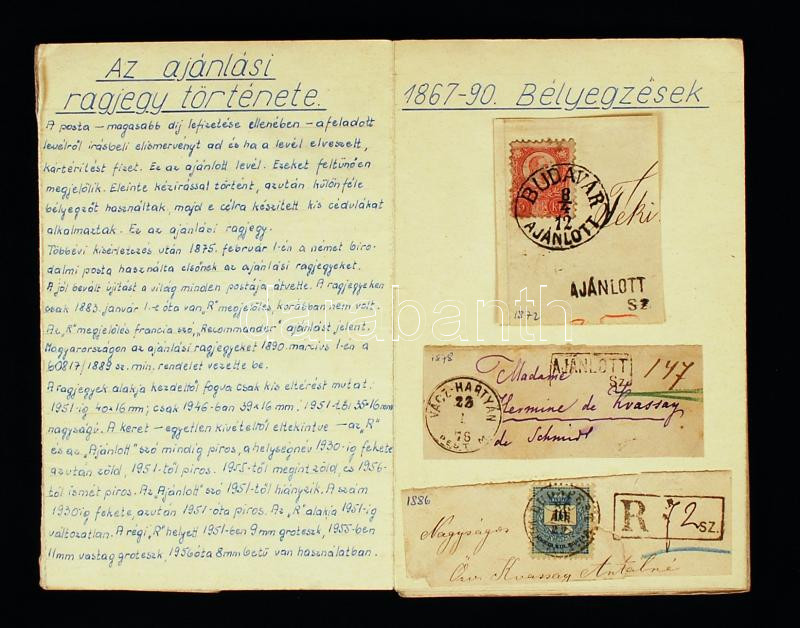 Az ajánlási
ragjegy története.
A posta – magasabb díj lefizetése ellenében – a feladott
levélről írásbeli elismervényt ad és ha a levél elveszett,
kártérítést fizet. Ez az ajánlott levél. Ezeket feltűnően
megjelölik. Eleinte kézírással történt, azután különféle
bélyegzőt használtak, majd e célra készített kis cédulákat
alkalmaztak. Ez az ajánlási ragjegy.
Többévi kísérletezés után 1875. február 1-én a német biro-
dalmi posta használta elsőnek az ajánlási ragjegyeket.
A jól bevált újítást a világ minden postája átvette. A ragjegyeken
csak 1883. január 1-e óta van „R" megjelölés, korábban nem volt.
Az „R" megjelölés francia szó, „Recommander" ajánlást jelent.
Magyarországon az ajánlási ragjegyeket 1890. március 1-én a
60817/1889 sz. min. rendelet vezette be.
A ragjegyek alakja kezdettől fogva csak kis eltérést mutat:
1951-ig 40x16 mm; csak 1946-ban 39x16 mm; 1951-től 35x16 mm
nagyságú. A keret – egyetlen kivételtől eltekintve – az „R"
és az „Ajánlott" szó mindig piros, a helységnév 1930-ig fekete
azután zöld, 1951-től piros. 1955-től megint zöld, és 1956-
tól ismét piros. Az „Ajánlott" szó 1951-től hiányzik. A szám
1930-ig fekete, azután 1951-óta piros. Az „R" alakja 1951-ig
változatlan. A régi „R" helyett 1951-ben 9 mm groteszk, 1955-ben
11 mm vastag groteszk, 1956 óta 8 mm betű van használatban.
1867-90. Bélyegzések
BUDAVÁR
8
4
72
AJÁNLOTT
Teki.
AJÁNLOTT
SZ.
1872
1878
AJÁNLOTT
SZ.
147
Madame
Hermine de Kvassay
de Schmidt
VÁCZ-HARTYÁN
23
78
PEST M.
1886
R 72 SZ.
Nagyságos
Özv. Kvassay Antalné
darabanth